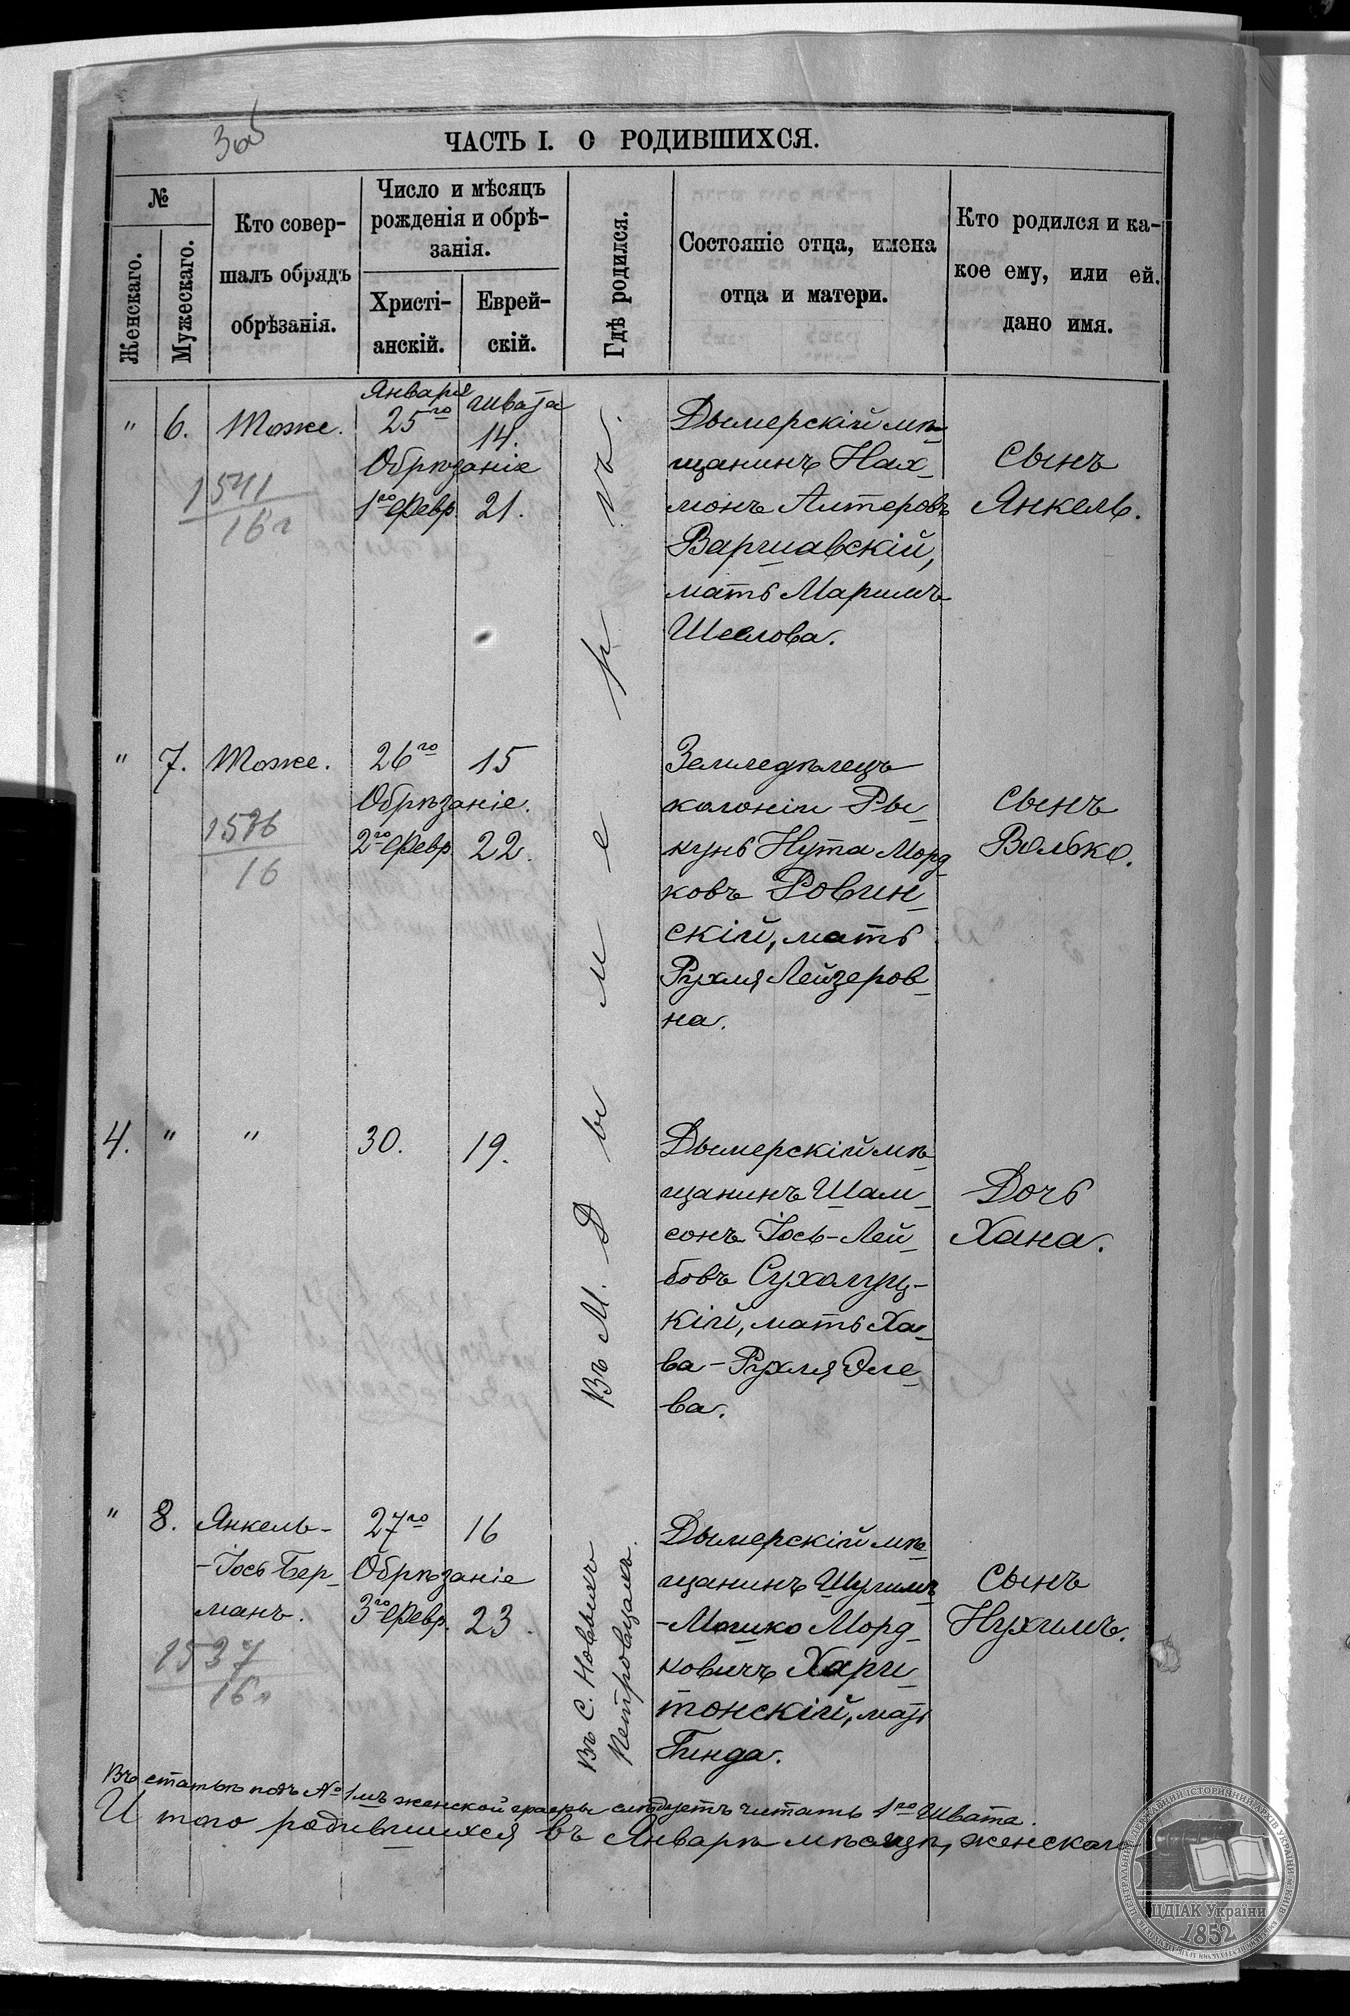 ЧАСТЬ I. О РОДИВШИХСЯ.
№
Женскаго.
Мужескаго.
Кто совер-
шалъ обрядъ
обрѣзанія.
Число и мѣсяцъ
рожденія и обрѣ-
занія.
Христі-
анскій.
Еврей-
скій.
Гдѣ родился.
Состояніе отца, имена
отца и матери.
Кто родился и ка-
кое ему, или ей.
дано имя.
" 6. Тоже.
Января
25го
Швата
14.
Обрѣзаніе
1го Февр. 21.
1541
16 г
Дымерскій мѣ-
щанинъ Нах-
монъ Алтеровъ
Варшавскій,
мать Маримъ
Шеелова.
сынъ
Янкель.
" 7. Тоже. 26го 15
Обрѣзаніе.
2го Февр. 22.
1536
16
Земледѣлецъ
колоніи Ры-
кунь Нута Морд-
ковъ Ровин-
скій, мать
Рухля Лейзеров-
на.
сынъ
Волько.
4. " " 30. 19.
Дымерскій мѣ-
щанинъ Шам-
сонъ Іось-Лей-
бовъ Сухолуц-
кій, мать Ха-
ва-Рухля Эле-
ва.
Дочь
Хана.
Въ М. Дымерѣ.
" 8. Янкель-
-Іось Бер-
манъ.
27го 16
Обрѣзаніе
3го Февр. 23.
1537
16 г
Въ С. Новыхъ
Петровцахъ.
Дымерскій мѣ-
щанинъ Шулимъ
-Мошко Морд-
ковичъ Хари-
тонскій, мать
Гинда.
сынъ
Нухимъ.
Въ статьѣ подъ № 1мъ женской графы слѣдуетъ читать 1го Швата.
И того родившихся въ Январѣ мѣсяцѣ, женскаго
ЦЕНТРАЛЬНИЙ ДЕРЖАВНИЙ ІСТОРИЧНИЙ АРХІВ УКРАЇНИ, М.КИЇВ
ЦДІАК України
1852